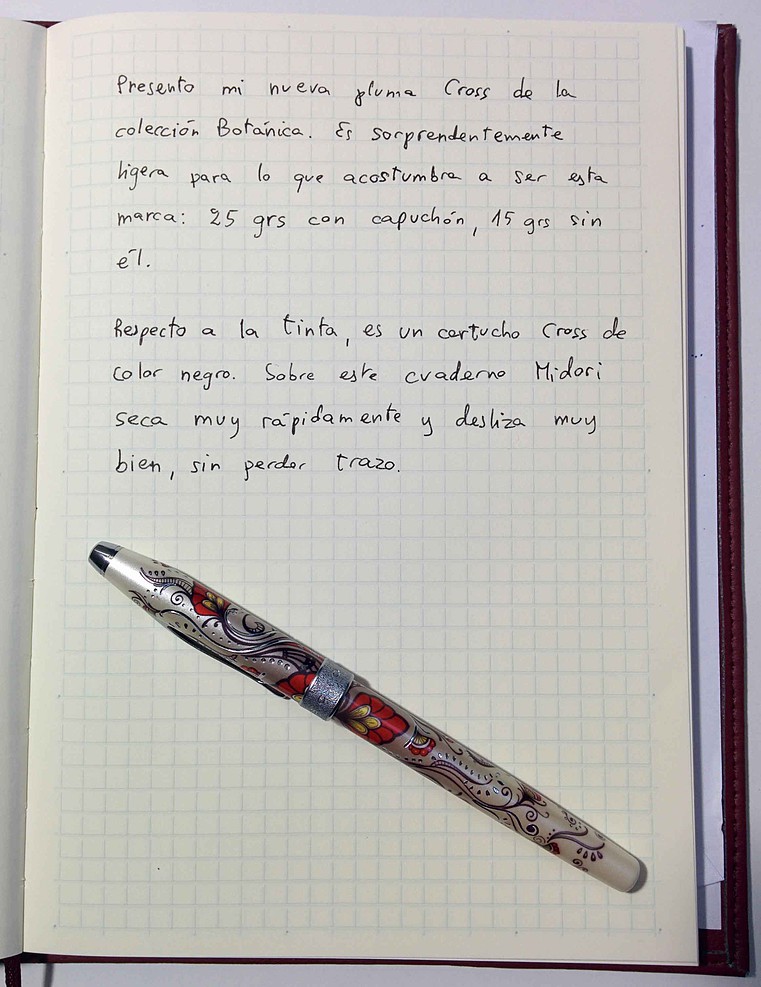 Presento mi nueva pluma Cross de la
colección Botánica. Es sorprendentemente
ligera para lo que acostumbra a ser esta
marca: 25 grs con capuchón, 15 grs sin
él.
Respecto a la tinta, es un cartucho Cross de
color negro. Sobre este cuaderno Midori
seca muy rápidamente y desliza muy
bien, sin perder trazo.